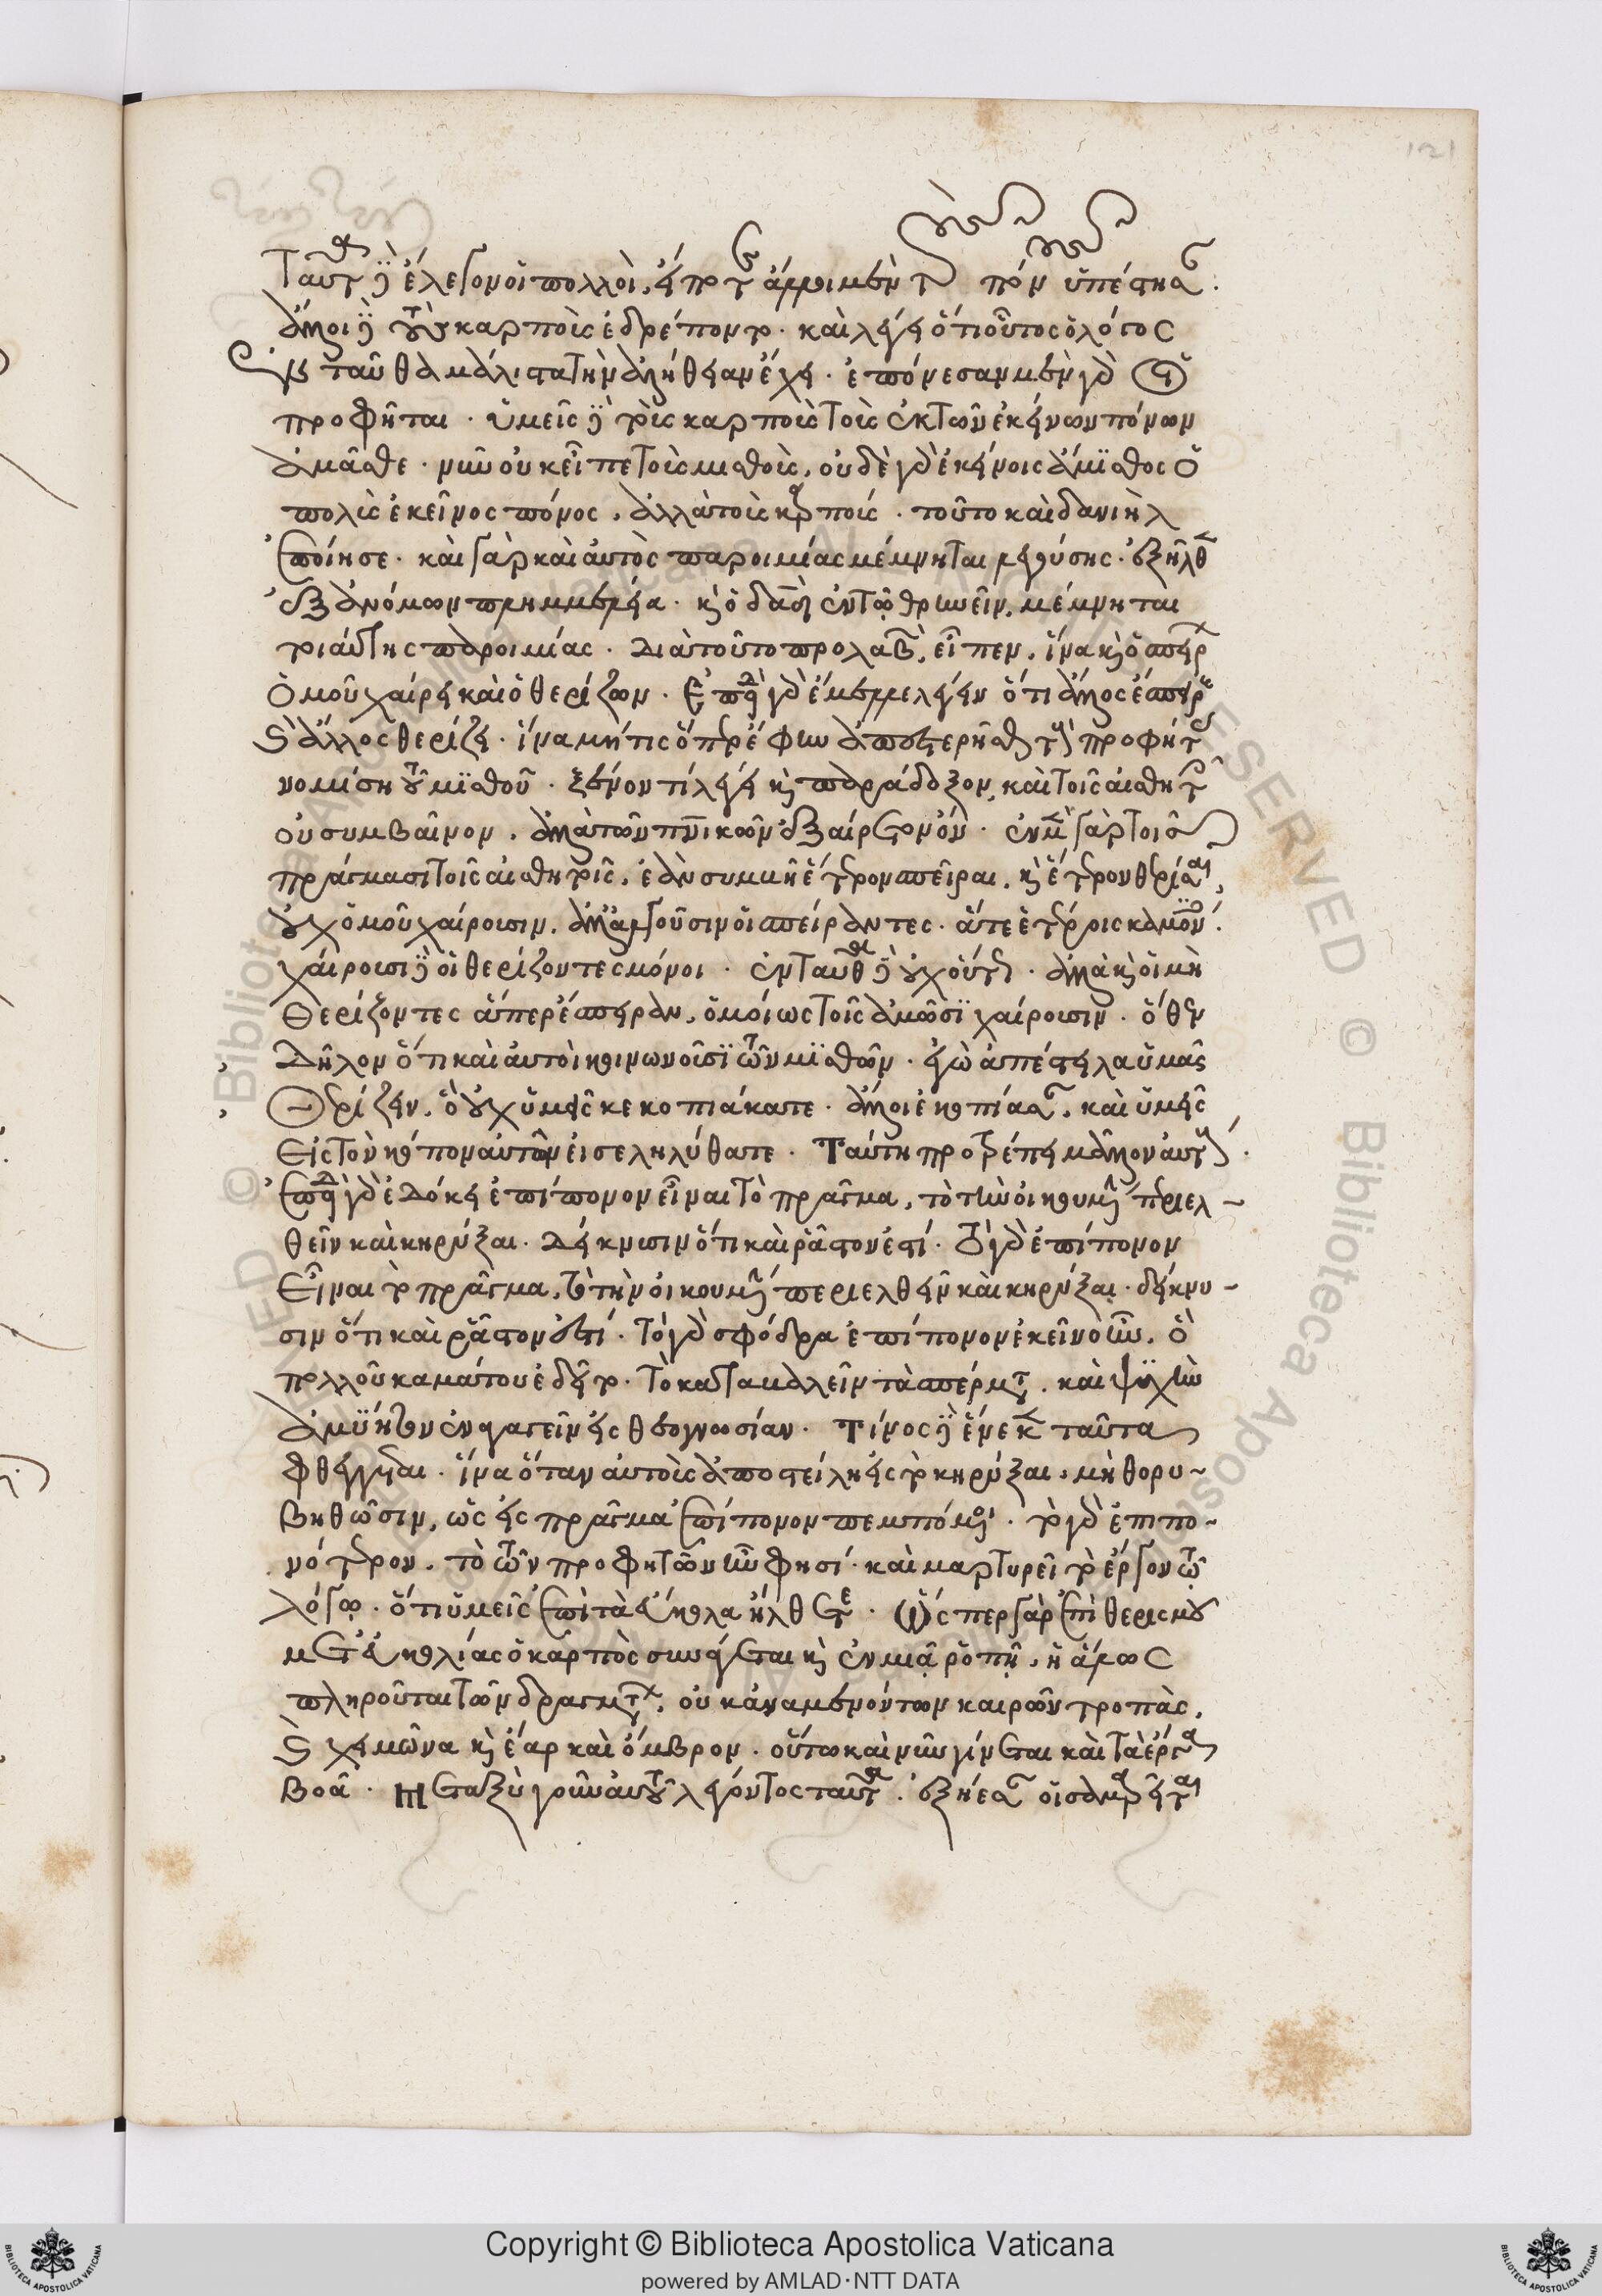 121
Ταῦτα δὲ ἔλεγον οἱ πολλοὶ, εἴποτε ἄλλοι μὲν τὸν πόνον ὑπέστησαν.
ἄλλοι δὲ τοὺς καρποὺς ἐδρέποντο. καὶ λέγει ὅτι οὗτος ὁ λόγος
ἐνταῦθα μάλιστα τὴν ἀλήθειαν ἔχει. ἐπόνεσαν μὲν γὰρ οἱ
προφῆται. ὑμεῖς δὲ τοὺς καρποὺς τοὺς ἐκ τῶν ἐκείνων πόνων
ἀμᾶσθε. νῦν οὐκ εἶπε τοὺς μισθοὺς, οὐδὲ γὰρ ἐκείνοις ἄμισθος ὁ
πολὺς ἐκεῖνος πόνος, ἀλλὰ τοὺς καρπούς. τοῦτο καὶ δανιὴλ
ἐποίησε. καὶ γὰρ καὶ αὐτὸς παροιμίας μέμνηται λεγούσης. ἐξῆλθεν
ἐξ ἀνόμων πλημμέλεια. καὶ ὁ δαυὶδ ἐν τῷ θρηνεῖν, μέμνηται
τοιαύτης παροιμίας. Διὰ τοῦτο προλαβὼν, εἶπεν, ἵνα καὶ ὁ σπείρων
ὁμοῦ χαίρῃ καὶ ὁ θερίζων. Ἐπειδὴ γὰρ ἔμελλε λέγειν ὅτι ἄλλος ἔσπειρε
καὶ ἄλλος θερίζει. ἵνα μή τις ὅπερ ἔφην ἀποστερῆσθαι τοὺς προφήτας
νομίσῃ τοῦ μισθοῦ. ξένον τι λέγει καὶ παράδοξον, καὶ τοῖς αἰσθητοῖς
οὐ συμβαῖνον, ἀλλὰ τῶν πνικῶν ἐξαίρετον ὄν. ἐν μὲν γὰρ τοῖς
πράγμασι τοῖς αἰσθητοῖς, ἐὰν συμβῇ ἕτερον σπεῖραι, καὶ ἕτερον θερίσαι,
οὐχ ὁμοῦ χαίρουσιν, ἀλλ' ἀλγοῦσιν οἱ σπείραντες. ἅτε ἑτέροις καμόντες.
χαίρουσι δὲ οἱ θερίζοντες μόνοι. ἐνταῦθα δὲ οὐχ οὕτως. ἀλλὰ καὶ οἱ μὴ
θερίζοντες ἅπερ ἔσπειραν, ὁμοίως τοῖς ἀμῶσι χαίρουσιν. ὅθεν
Δῆλον ὅτι καὶ αὐτοὶ κοινωνοῦσι τῶν μισθῶν. ἐγὼ ἀπέστειλα ὑμᾶς
θερίζειν, ὃ οὐχ ὑμεῖς κεκοπιάκατε. ἄλλοι ἐκοπίασαν, καὶ ὑμεῖς
Εἰς τὸν κόπον αὐτῶν εἰσεληλύθατε. Ταύτῃ προτρέπει μᾶλλον αὐτούς.
Ἐπειδὴ γὰρ ἐδόκει ἐπίπονον εἶναι τὸ πρᾶγμα, τὸ τὴν οἰκουμένην περιελ-
θεῖν καὶ κηρύξαι. Δείκνυσιν ὅτι καὶ ῥᾷστον ἐστί. τὸ γὰρ ἐπίπονον
Εἶναι τὸ πρᾶγμα, τὸ τὴν οἰκουμένην περιελθεῖν καὶ κηρύξαι. δείκνυ-
σιν ὅτι καὶ ῥᾷστον ἐστί. Τὸ γὰρ σφόδρα ἐπίπονον ἐκεῖνο ἦν, ὃ
πολλοῦ καμάτου ἐδεῖτο. Τὸ καταβαλεῖν τὰ σπέρματα. καὶ ψυχὴν
ἀμύητον ἐναγαγεῖν εἰς θεογνωσίαν. Τίνος δὲ ἕνεκεν ταῦτα
Φθέγγεται. ἵνα ὅταν αὐτοὺς ἀποστείλῃ εἰς τὸ κηρύξαι, μὴ θορυ-
βηθῶσιν, ὡς εἰς πρᾶγμα ἐπίπονον πεμπόμενοι. τὸ γὰρ ἐπιπο-
νότερον, τὸ τῶν προφητῶν ἦν φησί. καὶ μαρτυρεῖ τὸ ἔργον τῷ
λόγῳ. ὅτι ὑμεῖς ἐπὶ τὰ εὔκολα ἤλθετε. Ὥσπερ γὰρ ἐπὶ θερισμοῦ
μετ' εὐκολίας ὁ καρπὸς συνάγεται καὶ ἐν μιᾷ ῥοπῇ, ἡ ἅλως
πληροῦται τῶν δραγμάτων, οὐκ ἀναμενόντων καιρῶν τροπὰς,
καὶ χειμῶνα καὶ ἔαρ καὶ ὄμβρον. οὕτω καὶ νῦν γίνεται καὶ τὰ ἔργα
βοᾷ. Μεταξὺ γοῦν αὐτοῦ λέγοντος ταῦτα. ἐξῄεσαν οἱ σαμαρεῖται
Copyright © Biblioteca Apostolica Vaticana
powered by AMLAD·NTT DATA